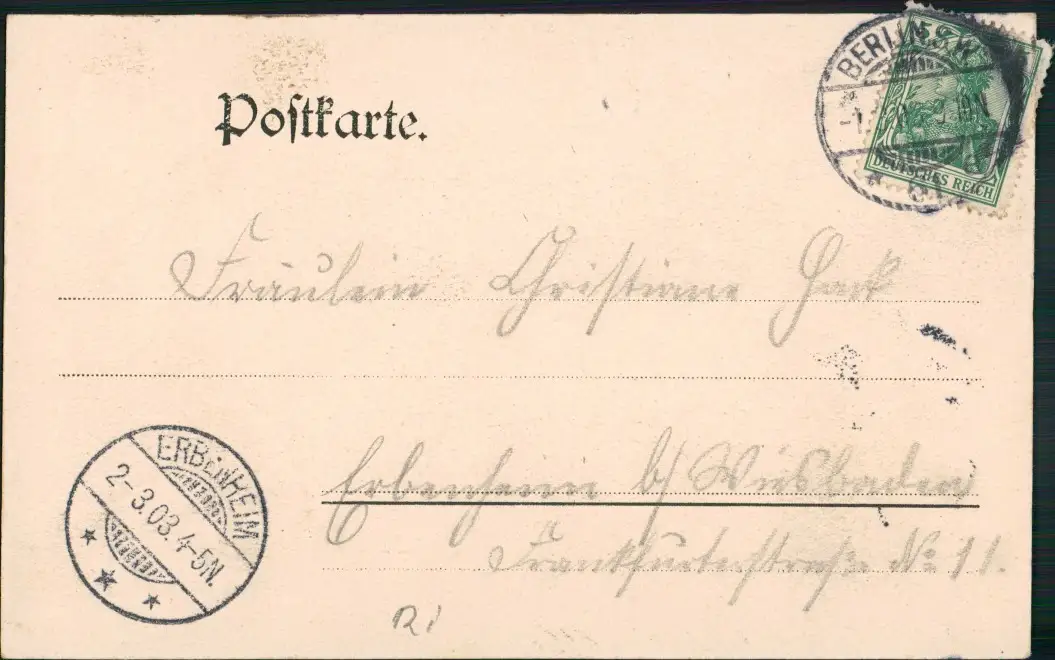 Postkarte.
BERLIN S.W.
5
DEUTSCHES REICH
Fräulein Christiane Hack
Erbenheim b/ Wiesbaden
Frankfurterstraße No 11.
ERBENHEIM
2-3.03.4-5N